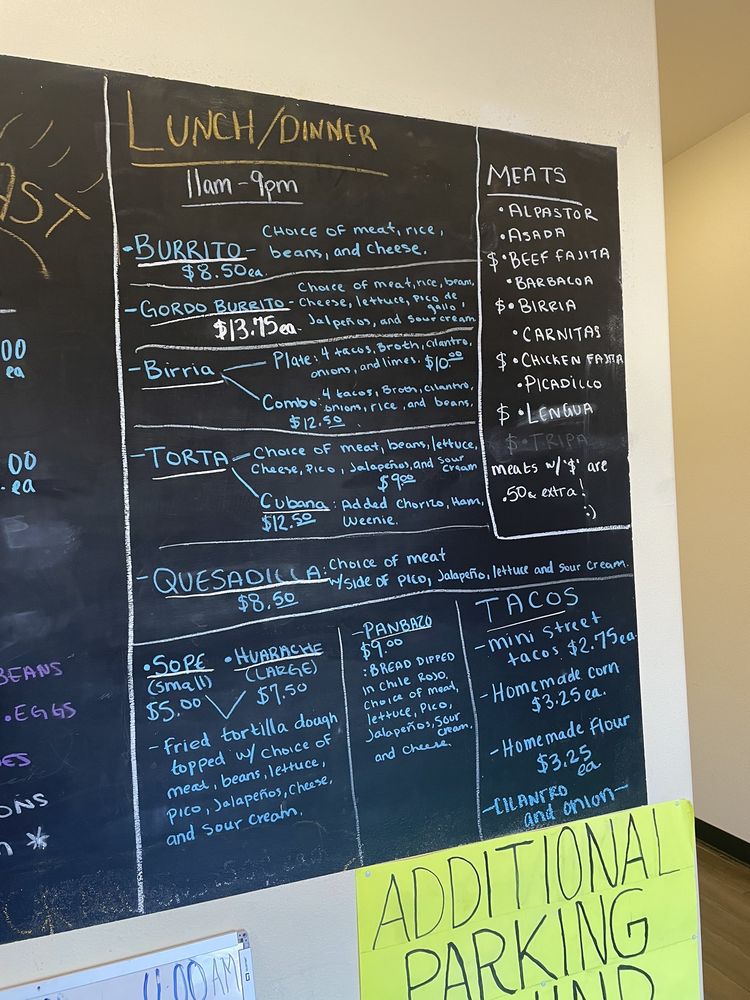 AST
00
ea
00
ea
BEANS
•EGGS
ONS
*
LUNCH/DINNER
11am-9pm
•BURRITO- CHOICE OF meat, rice,
beans, and cheese.
$8.50ea
-GORDO BURRITO- Choice of meat, rice, bean,
cheese, lettuce, Pico de
gallo,
Jalpeños, and sour cream
$13.75ea
-Birria
Plate: 4 tacos, Broth, cilantro,
onions, and limes. $10.00
Combo: 4 tacos, Broth, cilantro,
onions, rice, and beans.
$12.50
-TORTA
Choice of meat, beans, lettuce,
Cheese, Pico, Jalapeños, and sour
cream
$9.00
Cubana: Added Chorizo, Ham,
$12.50 Weenie.
-QUESADILLA: Choice of meat
w/side of Pico, Jalapeño, lettuce and sour cream.
$8.50
•SOPE •HUARACHE
(small) (LARGE)
$5.00 $7.50
-Fried tortilla dough
topped w/ choice of
meat, beans, lettuce,
Pico, Jalapeños, cheese,
and sour cream.
-PANBAZO
$9.00
:BREAD DIPPED
in Chile Rojo,
Choice of meat,
lettuce, Pico,
Jalapeños, sour
cream,
and cheese.
MEATS
•ALPASTOR
•ASADA
$•BEEF FAJITA
•BARBACOA
$•BIRRIA
•CARNITAS
$•CHICKEN FAJITA
•PICADILLO
$•LENGUA
$•TRIPA
meats w/'$' are
.50¢ extra!
:)
TACOS
-mini street
tacos $2.75ea
-Homemade corn
$3.25 ea.
-Homemade flour
$3.25
ea
-CILANTRO
and onion-
ADDITIONAL
PARKING
:00AM